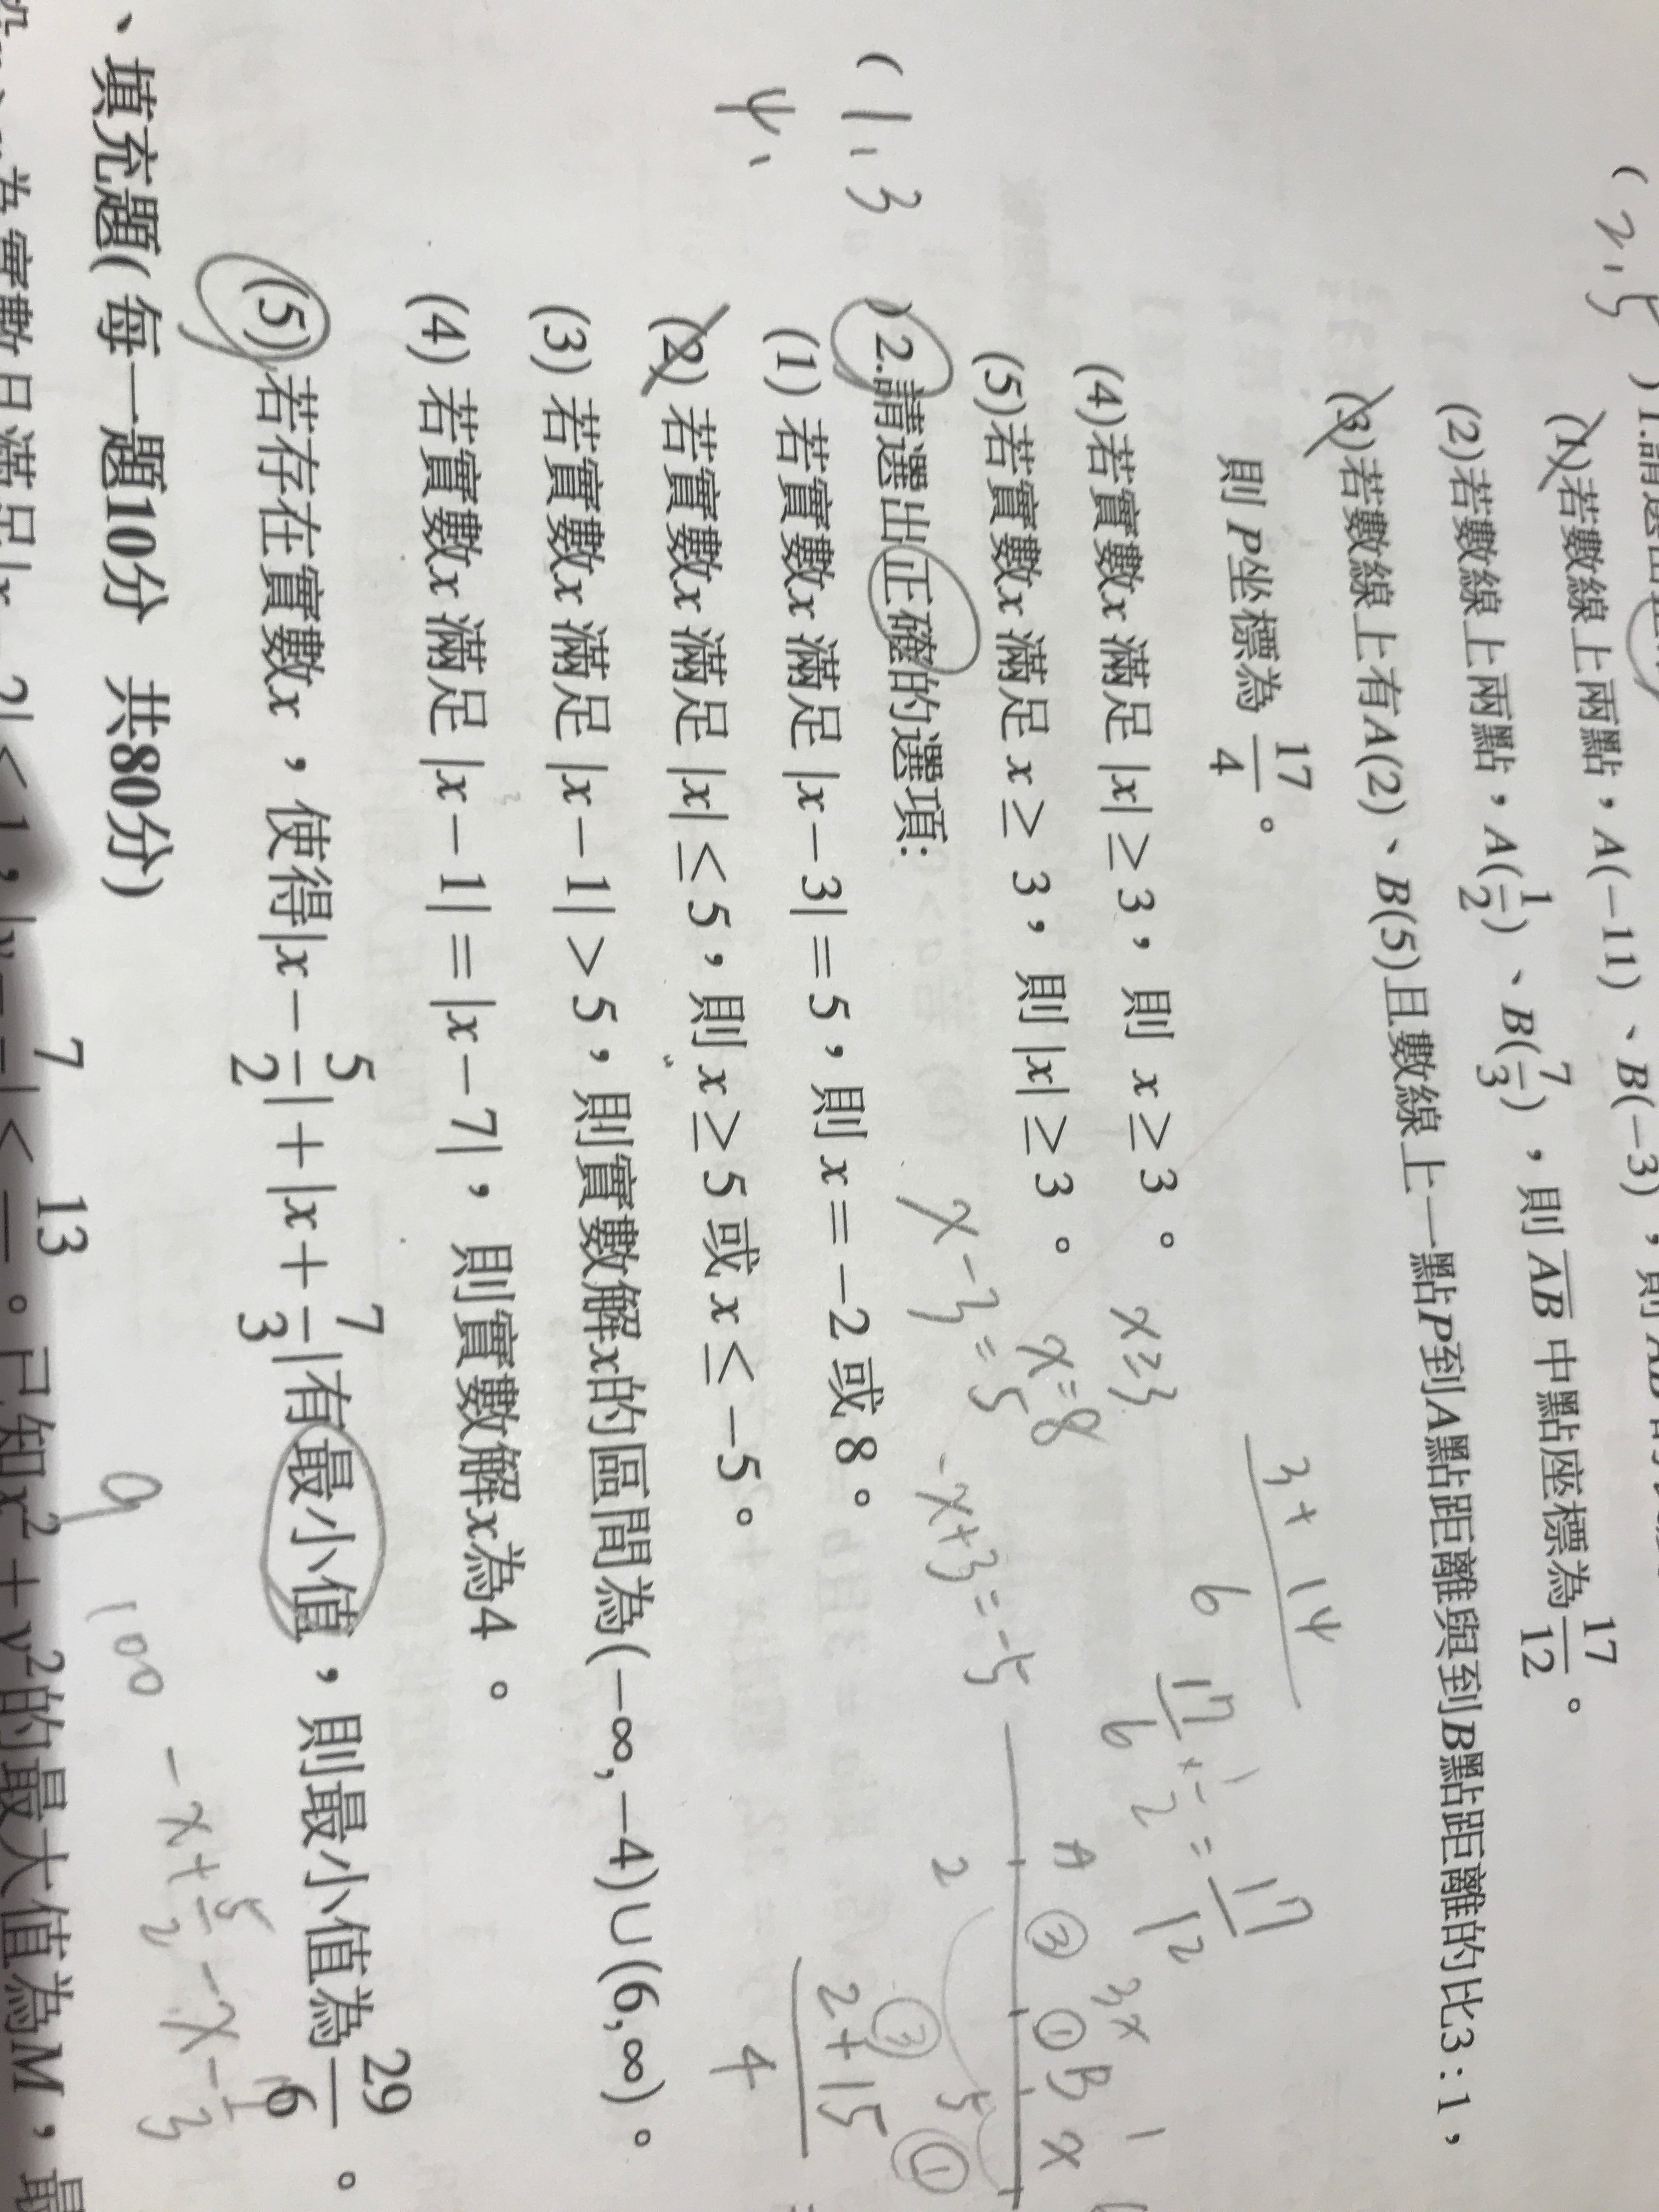 ( 2, 5 ) 1.請選出正
(1)若數線上兩點，A(−11)、B(−3)，則AB
(2)若數線上兩點，A(1/2)、B(7/3)，則AB中點座標為17/12。
(3)若數線上有A(2)、B(5)且數線上一點P到A點距離與到B點距離的比3:1，
則P坐標為17/4。
(4)若實數x滿足|x|≥3，則 x≥3。
(5)若實數x滿足x≥3，則|x|≥3。
( 1, 3 )2.請選出正確的選項:
4,
(1) 若實數x滿足|x−3|=5，則x=−2或8。
(2) 若實數x滿足|x|≤5，則x≥5或x≤−5。
(3) 若實數x滿足|x−1|>5，則實數解x的區間為(−∞,−4)∪(6,∞)。
(4) 若實數x滿足|x−1|=|x−7|，則實數解x為4。
(5) 若存在實數x，使得|x−5/2|+|x+7/3|有最小值，則最小值為29/6。
、填充題(每一題10分 共80分)
3+14
6
17/6×1/2=17/12
x≥3
x=8
x−3=5
-x+3=-5
A ③ ① B x
2
5
3x
1
2+15
4
③
①
9
100
-x+5/2-x-7/3